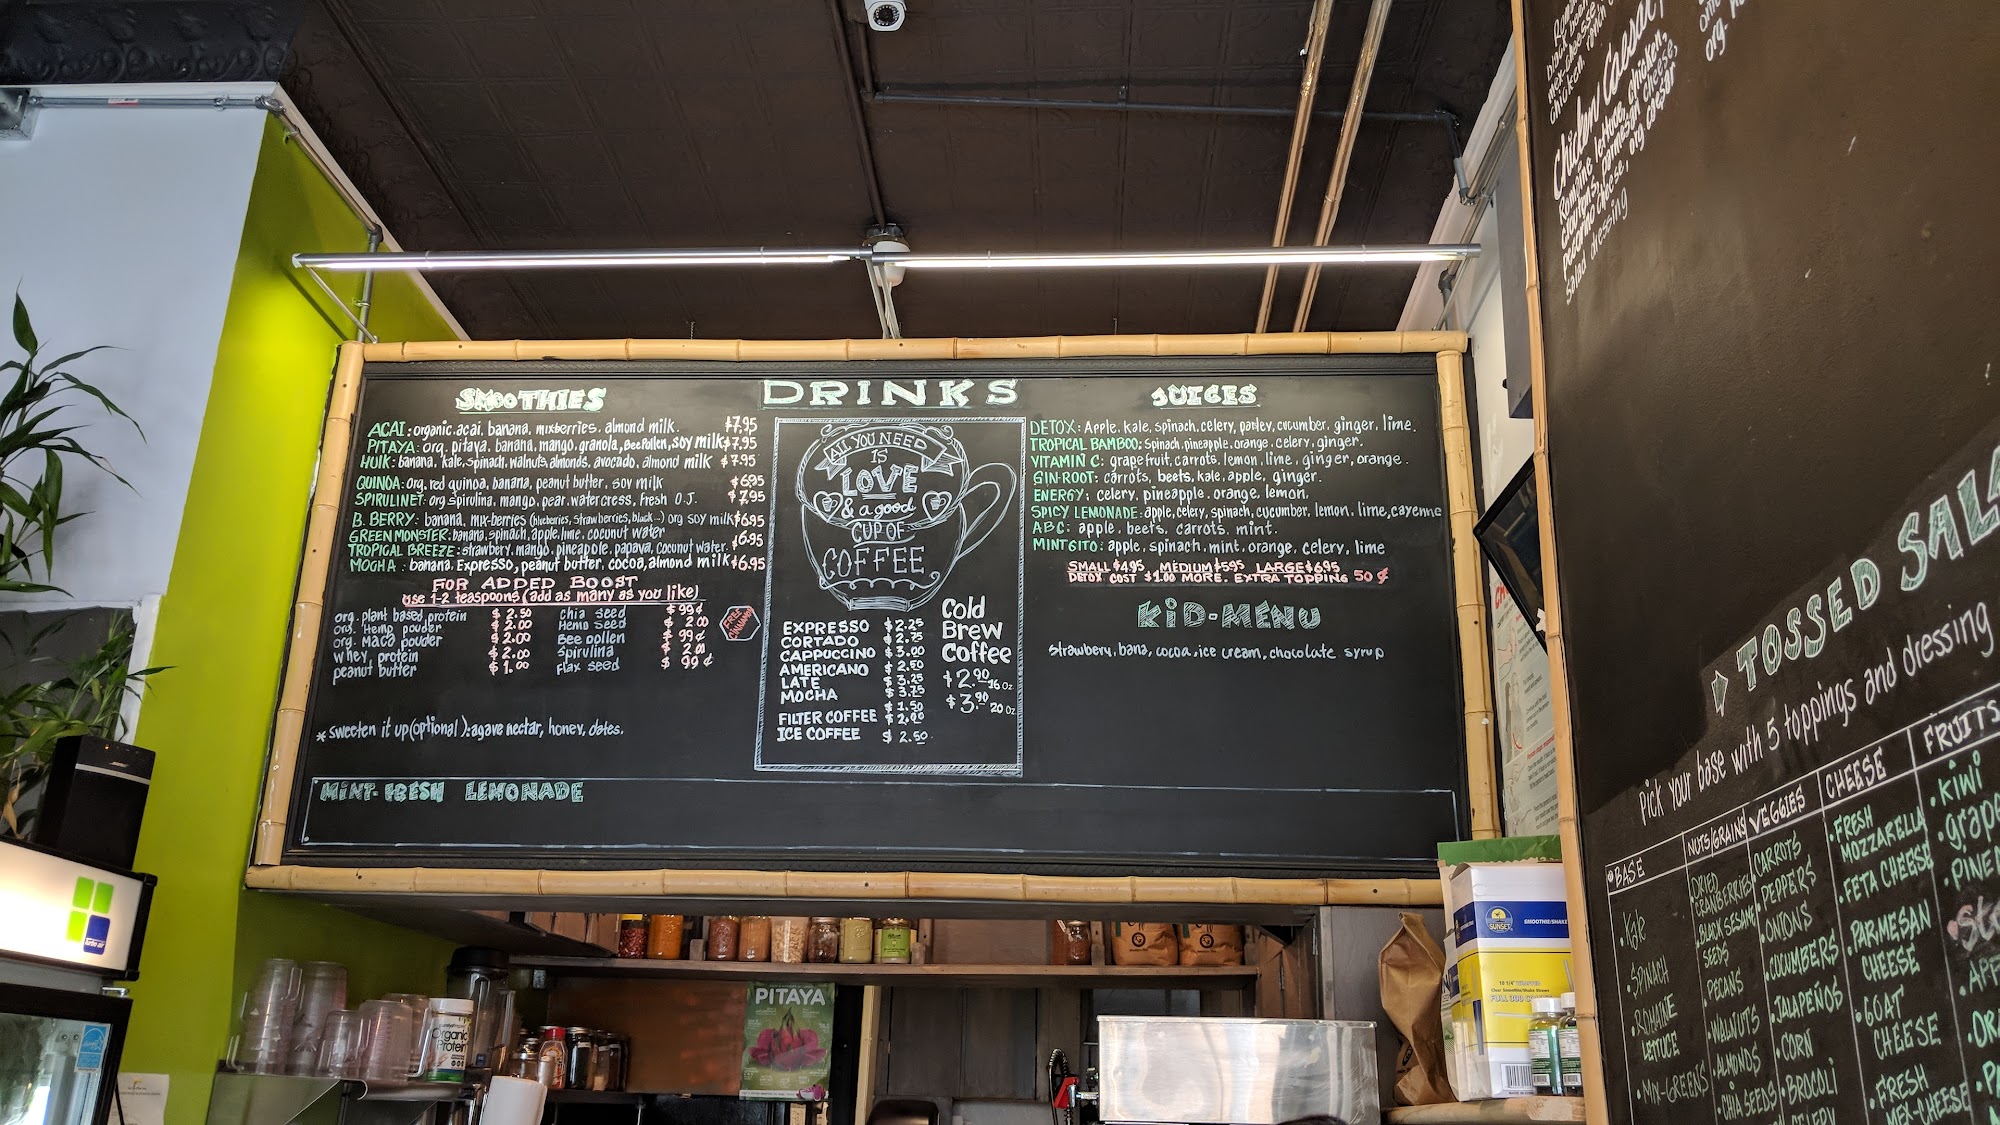 SMOOTHIES
ACAI: organic acai, banana, mixberries, almond milk. $7.95
PITAYA: org. pitaya, banana, mango, granola, Bee Pollen, soy milk $7.95
HULK: banana, kale, spinach, walnuts, almonds, avocado, almond milk $7.95
QUINOA: org. red quinoa, banana, peanut butter, soy milk $6.95
SPIRULINET: org spirulina, mango, pear, watercress, fresh O.J. $7.95
B. BERRY: banana, mix-berries (blueberries, strawberries, black..) org soy milk $6.95
GREEN MONSTER: banana, spinach, apple, lime, coconut water
TROPICAL BREEZE: strawberry, mango, pineapple, papaya, coconut water. $6.95
MOCHA: banana, Expresso, peanut butter, cocoa, almond milk $6.95
FOR ADDED BOOST
Use 1-2 teaspoons (add as many as you like)
org. plant based protein $2.50 chia seed $99¢
org. Hemp powder $2.00 Hemp seed $2.00
org. Maca powder $2.00 Bee pollen $99¢
Whey protein $2.00 Spirulina $2.00
peanut butter $1.00 Flax seed $99¢
FREE CINNAMON
* sweeten it up (optional): agave nectar, honey, dates.
MINT-FRESH LEMONADE
DRINKS
ALL YOU NEED
IS
LOVE
& a good
CUP OF
COFFEE
EXPRESSO $2.25
CORTADO $2.75
CAPPUCCINO $3.00
AMERICANO $2.50
LATE $3.25
MOCHA $3.75
$1.50
FILTER COFFEE $2.00
ICE COFFEE $2.50
Cold
Brew
Coffee
$2.90 16 oz
$3.90 20 oz
JUICES
DETOX: Apple, kale, spinach, celery, parley, cucumber, ginger, lime.
TROPICAL BAMBOO: Spinach, pineapple, orange, celery, ginger.
VITAMIN C: grapefruit, carrots, lemon, lime, ginger, orange.
GIN-ROOT: carrots, beets, kale, apple, ginger.
ENERGY: celery, pineapple, orange, lemon.
SPICY LEMONADE: apple, celery, spinach, cucumber, lemon, lime, cayenne
ABC: apple, beets, carrots, mint.
MINTGITO: apple, spinach, mint, orange, celery, lime
SMALL $4.95 MEDIUM $5.95 LARGE $6.95
DETOX COST $1.00 MORE. EXTRA TOPPING 50¢
KID-MENU
strawbery, bana, cocoa, ice cream, chocolate syrup
Chicken Caesar
Romaine lettuce, chicken,
croutons, parmesan cheese,
pecorino cheese, org caesar
salad dressing
TOSSED SAL
Pick your base with 5 toppings and dressing
BASE
Kale
SPINACH
ROMAINE
LETTUCE
MIX-GREENS
NUTS/GRAINS
DRIED
CRANBERRIES
BLACK SESAME
SEEDS
PECANS
WALNUTS
ALMONDS
CHIA SEEDS
VEGGIES
CARROTS
PEPPERS
ONIONS
CUCUMBERS
JALAPEÑOS
CORN
BROCOLI
CELERY
CHEESE
FRESH
MOZZARELLA
FETA CHEESE
PARMESAN
CHEESE
GOAT
CHEESE
FRESH
MEX-CHEESE
FRUITS
KIWI
grape
PINE
APP
PITAYA
Organic
Protein
SUNSET
SMOOTHIE/SHAKE
turbo air